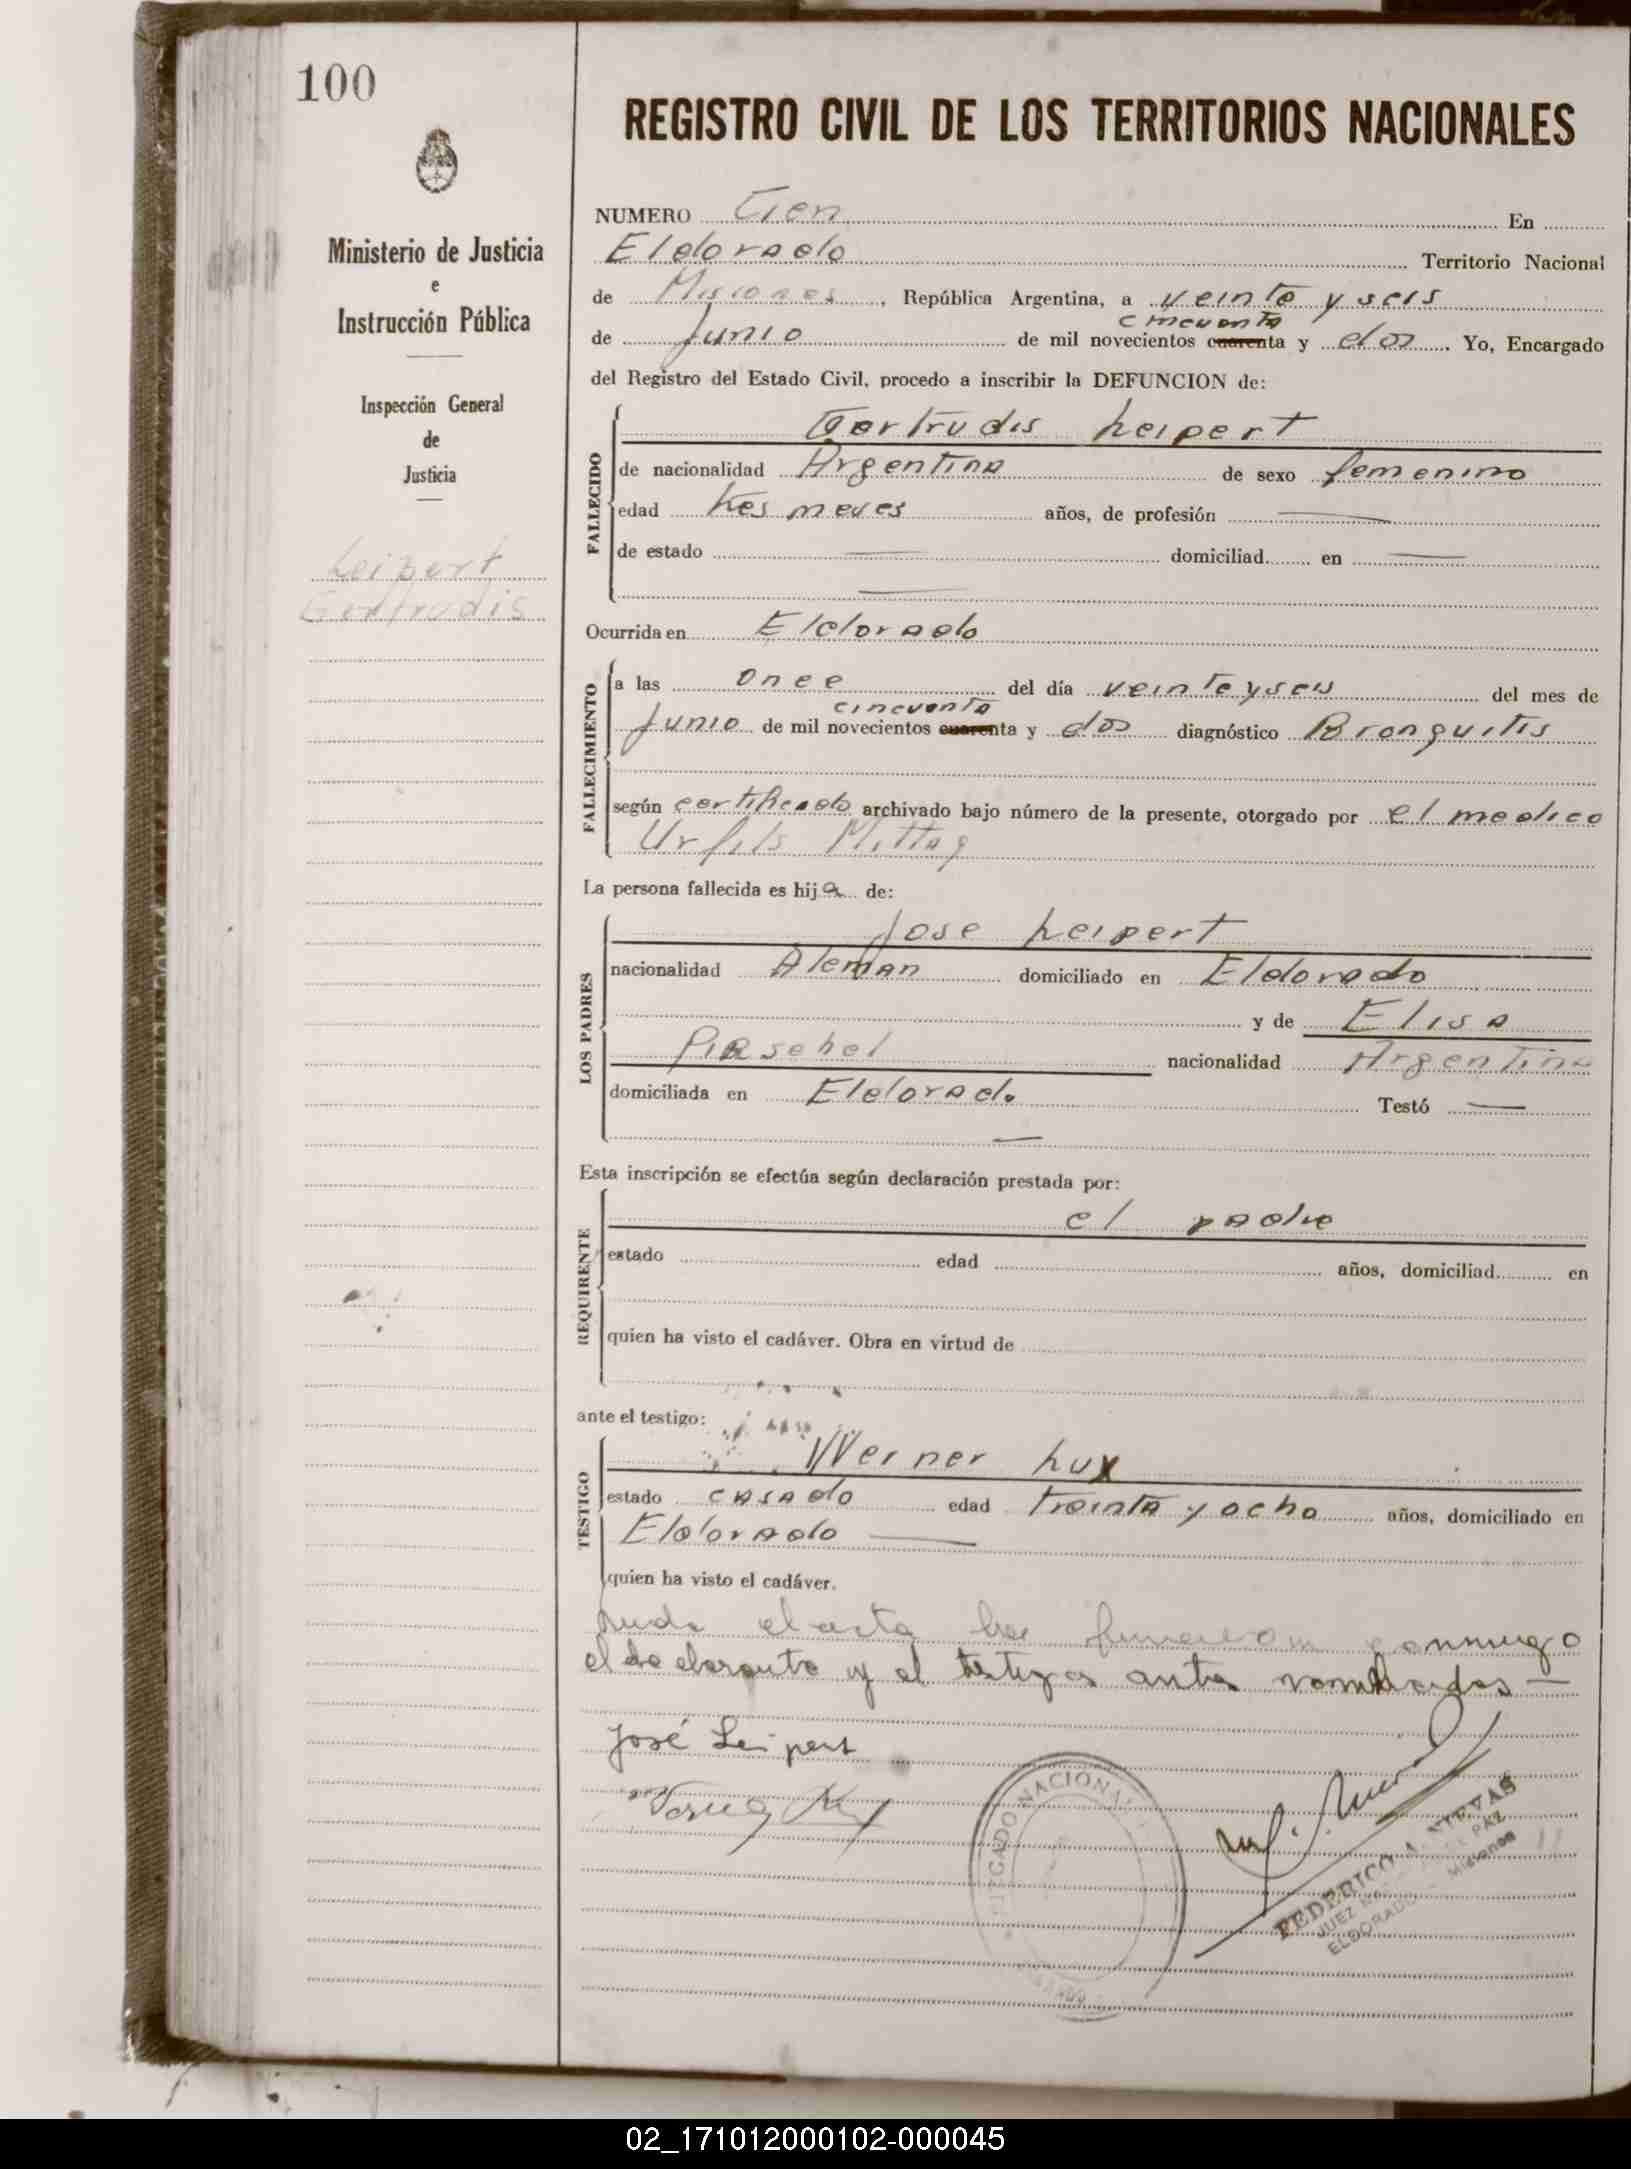 100
REGISTRO CIVIL DE LOS TERRITORIOS NACIONALES
Ministerio de Justicia
e
Instrucción Pública
Inspección General
de
Justicia
Leipert
Gertrudis
NUMERO Cien En
Eldorado Territorio Nacional
de Misiones, República Argentina, a veinte y seis
cincuenta
de Junio de mil novecientos cuarenta y dos. Yo, Encargado
del Registro del Estado Civil, procedo a inscribir la DEFUNCION de:
FALLECIDO
Gertrudis Leipert
de nacionalidad Argentina de sexo femenino
edad tres meses años, de profesión —
de estado — domiciliad en —
—
Ocurrida en Eldorado
FALLECIMIENTO
a las once del día veinte y seis del mes de
cincuenta
Junio de mil novecientos cuarenta y dos diagnóstico Bronquitis
según certificado archivado bajo número de la presente, otorgado por el medico
Mittag
La persona fallecida es hija de:
LOS PADRES
Jose Leipert
nacionalidad Aleman domiciliado en Eldorado
y de Elisa
nacionalidad Argentina
domiciliada en Eldorado Testó —
—
Esta inscripción se efectúa según declaración prestada por:
REQUIRENTE
el padre
estado edad años, domiciliad en
quien ha visto el cadáver. Obra en virtud de
ante el testigo:
TESTIGO
Werner Lux
estado casado edad treinta y ocho años, domiciliado en
Eldorado —
quien ha visto el cadáver.
el acta conmigo
el declarante y el testigo antes nombrados —
José Leipert
JUZGADO NACIONAL
FEDERICO A. NIEVAS
JUEZ DE PAZ
ELDORADO - Misiones
02_171012000102-000045